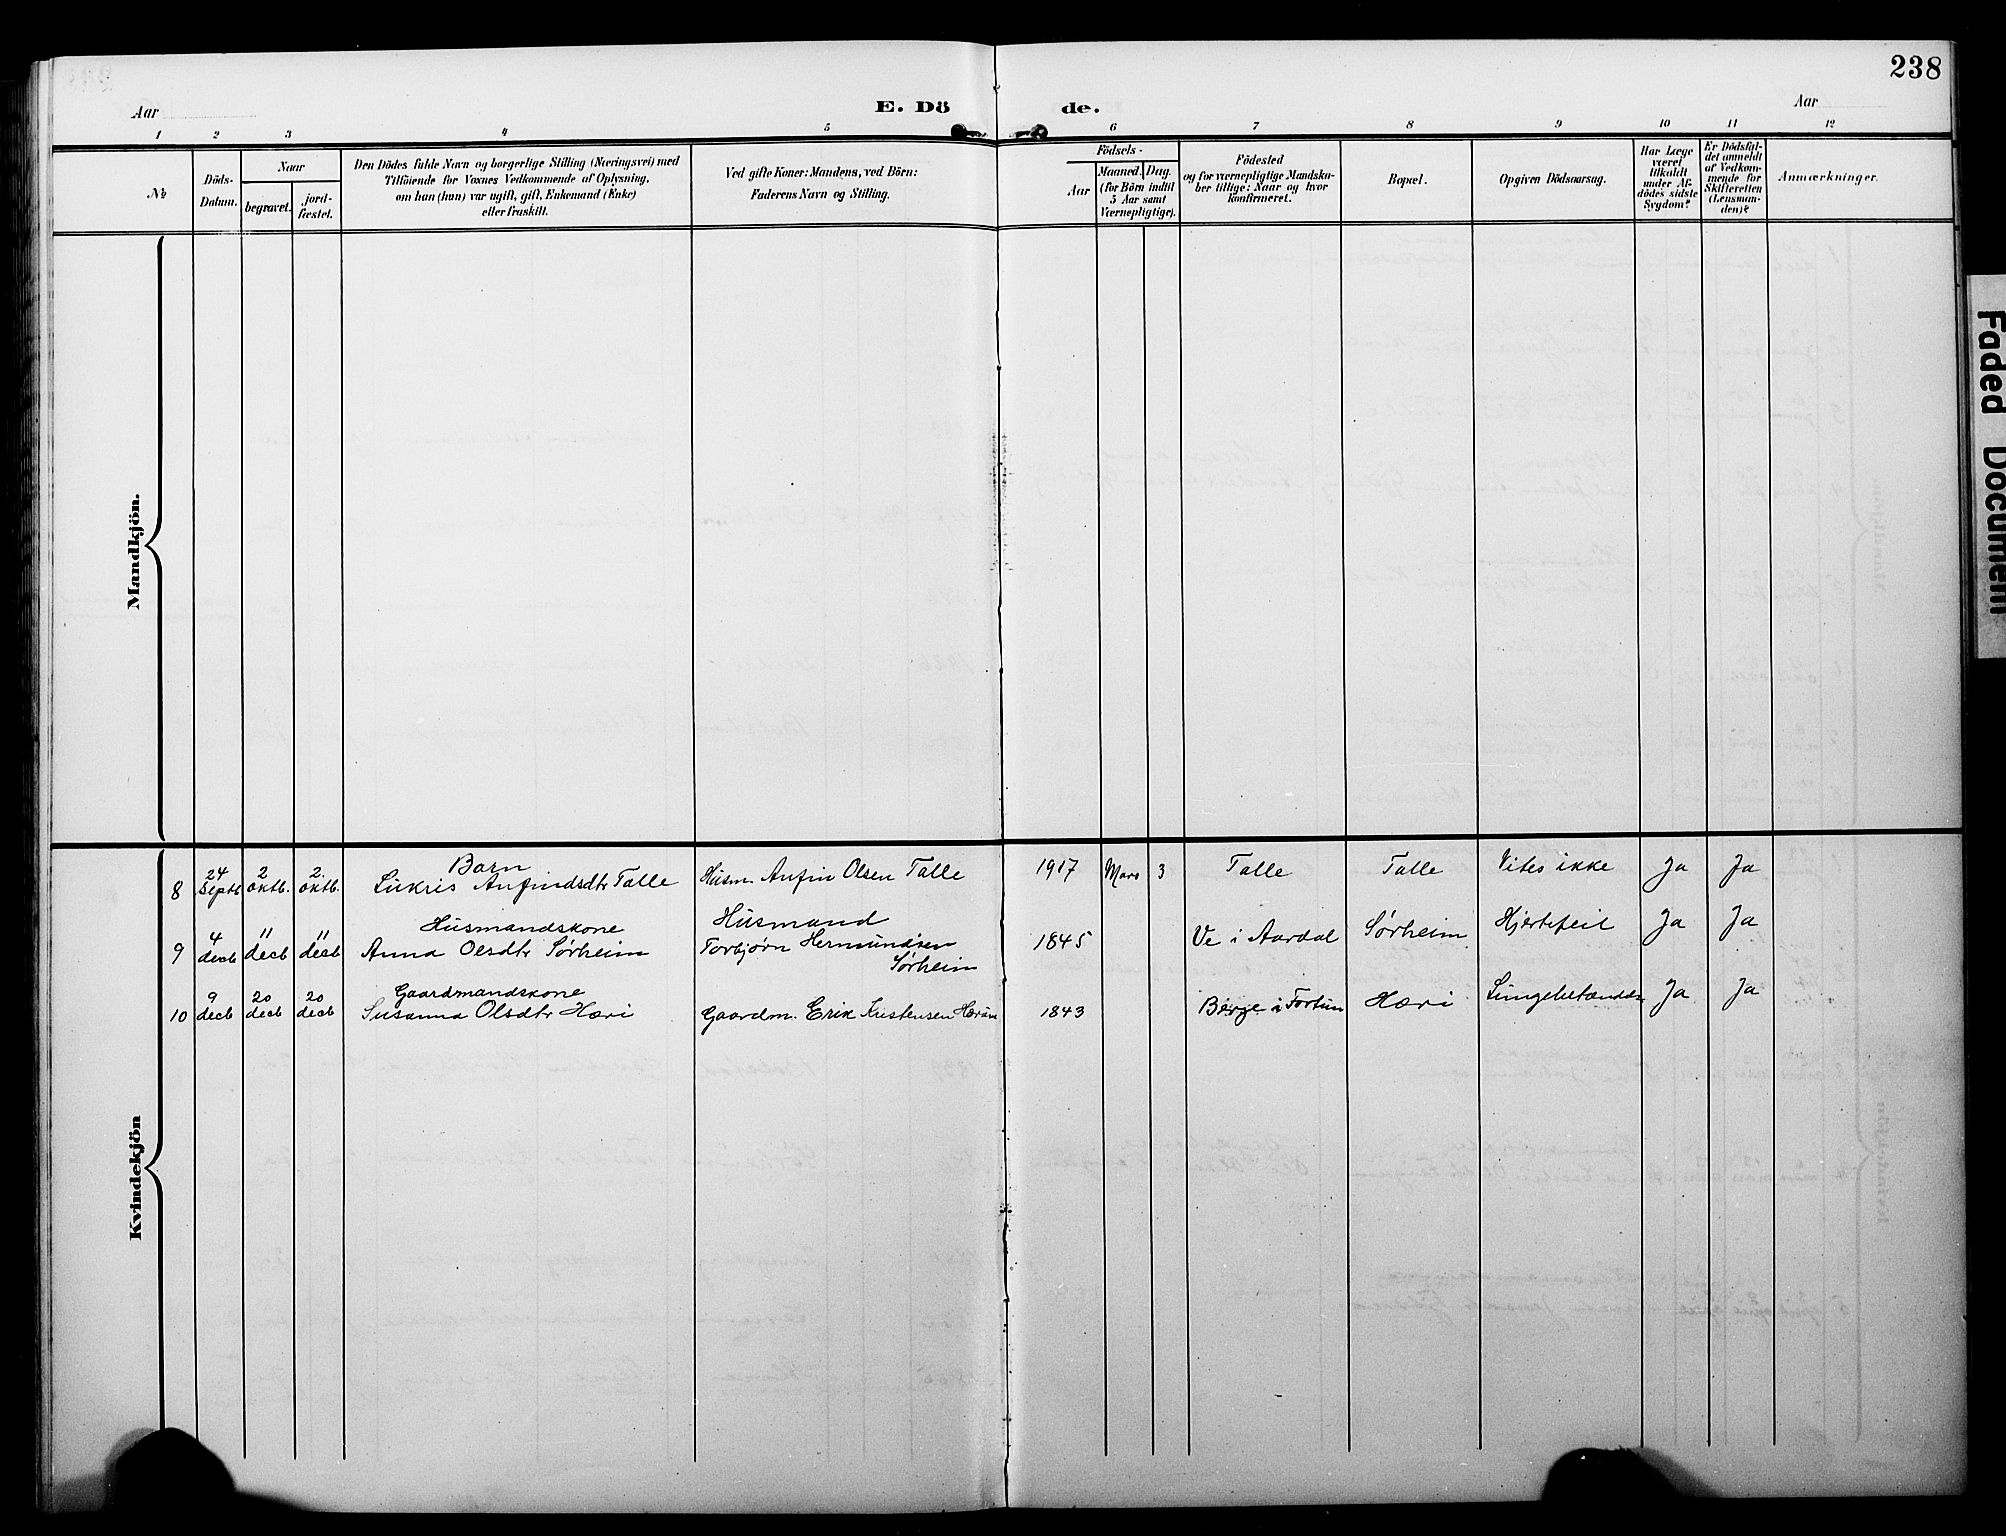 238
Aar
E. Dö de.
Aar
1 2 3 4 5 6 7 8 9 10 11 12
No
Döds-
Datum.
Naar
begravet.
jord-
fæstet.
Den Dödes fulde Navn og borgerlige Stilling (Næringsvei) med
Tilföiende for Voxnes Vedkommende af Oplysning,
om han (hun) var ugift, gift, Enkemand (Enke)
eller fraskilt.
Ved gifte Koner: Mandens, ved Börn:
Faderens Navn og Stilling.
Födsels-
Aar
Maaned. Dag.
(for Börn indtil
5 Aar samt
Værnepligtige).
Födested
og for værnepligtige Mandska-
ber tillige: Naar og hvor
konfirmeret.
Bopæl.
Opgiven Dödsaarsag.
Har Læge
været
tilkaldt
under Af-
dödes sidste
Sygdom?
Er Dödsfal-
det anmeldt
af Vedkom-
mende for
Skifteretten
(Lensman-
den)?
Anmærkninger.
Mandkjön.
Kvindekjön
8 24 Septb 2 oktb. 2. oktb. Barn
Lukris Anfindsdtr Talle Husm. Anfin Olsen Talle 1917 Mars 3 Talle Talle Vites ikke Ja Ja
9 4 decb 11 decb 11 decb Husmandskone
Anna Olsdtr Sørheim Husmand
Torbjørn Hermundsen
Sørheim 1845 Ve i Aardal Sørheim Hjertefeil Ja Ja
10 9 decb 20 decb 20 decb Gaardmandskone
Susanna Olsdtr Hæri Gaardm. Erik Kristensen 1843 Berge i Fortun Hæri Ja Ja
Faded Document